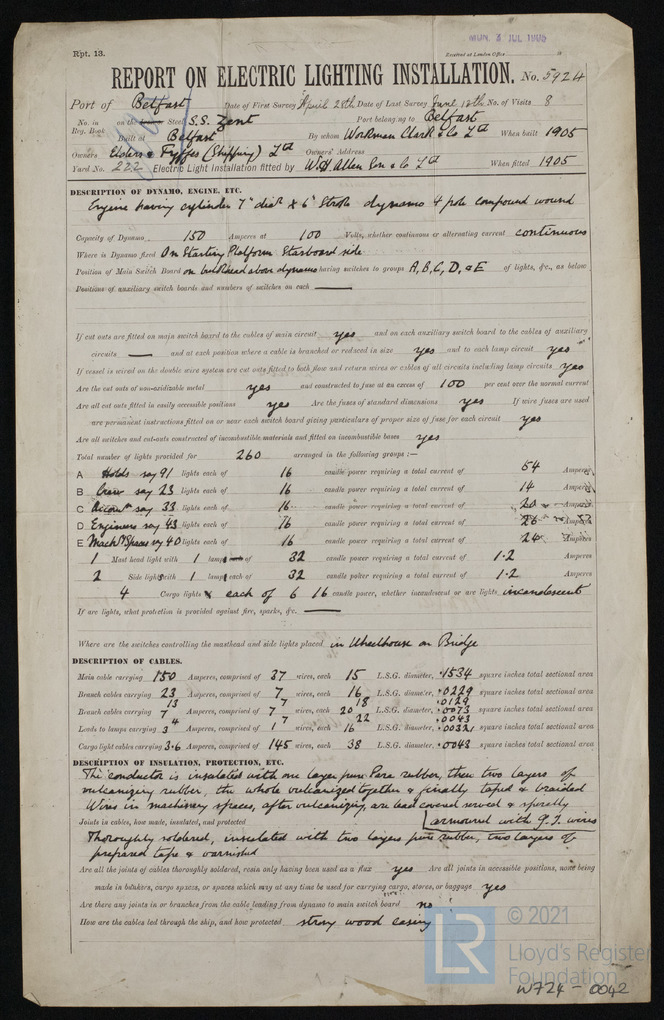 Rpt. 13.
MON. 3 JUL 1905
Received at London Office
REPORT ON ELECTRIC LIGHTING INSTALLATION. No. 5924
Port of Belfast Date of First Survey April 28th Date of Last Survey June 12th No. of Visits 8
No. in Reg. Book on the Steel S.S. Zent Port belonging to Belfast
Built at Belfast By whom Workman Clark & Co Ltd When built 1905
Owners Elders & Fyffes (Shipping) Ltd Owners' Address
Yard No. 222 Electric Light Installation fitted by W.H. Allen Son & Co Ltd When fitted 1905
DESCRIPTION OF DYNAMO, ENGINE, ETC.
Engine having cylinder 7" diar x 6" Stroke dynamo 4 pole compound wound
Capacity of Dynamo 150 Amperes at 100 Volts, whether continuous or alternating current continuous
Where is Dynamo fixed On Starting Platform Starboard side
Position of Main Switch Board on bulkhead above dynamo having switches to groups A, B, C, D, & E of lights, &c., as below
Positions of auxiliary switch boards and numbers of switches on each —
If cut outs are fitted on main switch board to the cables of main circuit yes and on each auxiliary switch board to the cables of auxiliary
circuits — and at each position where a cable is branched or reduced in size yes and to each lamp circuit yes
If vessel is wired on the double wire system are cut outs fitted to both flow and return wires or cables of all circuits including lamp circuits yes
Are the cut outs of non-oxidizable metal yes and constructed to fuse at an excess of 100 per cent over the normal current
Are all cut outs fitted in easily accessible positions yes Are the fuses of standard dimensions yes If wire fuses are used
are permanent instructions fitted on or near each switch board giving particulars of proper size of fuse for each circuit yes
Are all switches and cut-outs constructed of incombustible materials and fitted on incombustible bases yes
Total number of lights provided for 260 arranged in the following groups :—
A Holds say 91 lights each of 16 candle power requiring a total current of 54 Amperes
B Crew say 23 lights each of 16 candle power requiring a total current of 14 Amperes
C Accomn say 33 lights each of 16 candle power requiring a total current of 20 Amperes
D Engineers say 43 lights each of 16 candle power requiring a total current of 26 Amperes
E Machy Spaces say 40 lights each of 16 candle power requiring a total current of 24 Amperes
1 Mast head light with 1 lamp each of 32 candle power requiring a total current of 1.2 Amperes
2 Side lights with 1 lamp each of 32 candle power requiring a total current of 1.2 Amperes
4 Cargo lights each of 6 16 candle power, whether incandescent or arc lights incandescent
If arc lights, what protection is provided against fire, sparks, &c. —
Where are the switches controlling the masthead and side lights placed in Wheelhouse on Bridge
DESCRIPTION OF CABLES.
Main cable carrying 150 Amperes, comprised of 37 wires, each 15 L.S.G. diameter, .1534 square inches total sectional area
Branch cables carrying 23 Amperes, comprised of 7 wires, each 16 L.S.G. diameter, .0229 square inches total sectional area
13 7 18 .0129
Branch cables carrying 7 Amperes, comprised of 7 wires, each 20 L.S.G. diameter, .0073 square inches total sectional area
4 7 22 .0043
Leads to lamps carrying 3 Amperes, comprised of 1 wires, each 16 L.S.G. diameter, .0032 square inches total sectional area
Cargo light cables carrying 3.6 Amperes, comprised of 145 wires, each 38 L.S.G. diameter, .0043 square inches total sectional area
DESCRIPTION OF INSULATION, PROTECTION, ETC.
The conductor is insulated with one layer pure Para rubber, then two layers of
vulcanizing rubber, the whole vulcanized together & finally taped & braided
Wires in machinery spaces, after vulcanizing, are lead covered served & spirally
armoured with G.I. wires
Joints in cables, how made, insulated, and protected
Thoroughly soldered, insulated with two layers pure rubber, two layers of
prepared tape & varnished
Are all the joints of cables thoroughly soldered, resin only having been used as a flux yes Are all joints in accessible positions, none being
made in bunkers, cargo spaces, or spaces which may at any time be used for carrying cargo, stores, or baggage yes
Are there any joints in or branches from the cable leading from dynamo to main switch board no
How are the cables led through the ship, and how protected strong wood casing
LR
© 2021
Lloyd's Register
Foundation
W724-0042